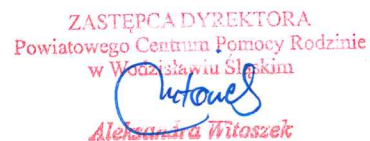 ZASTĘPCA DYREKTORA
Powiatowego Centrum Pomocy Rodzinie
w Wodzisławiu Śląskim
Aleksandra Witoszek